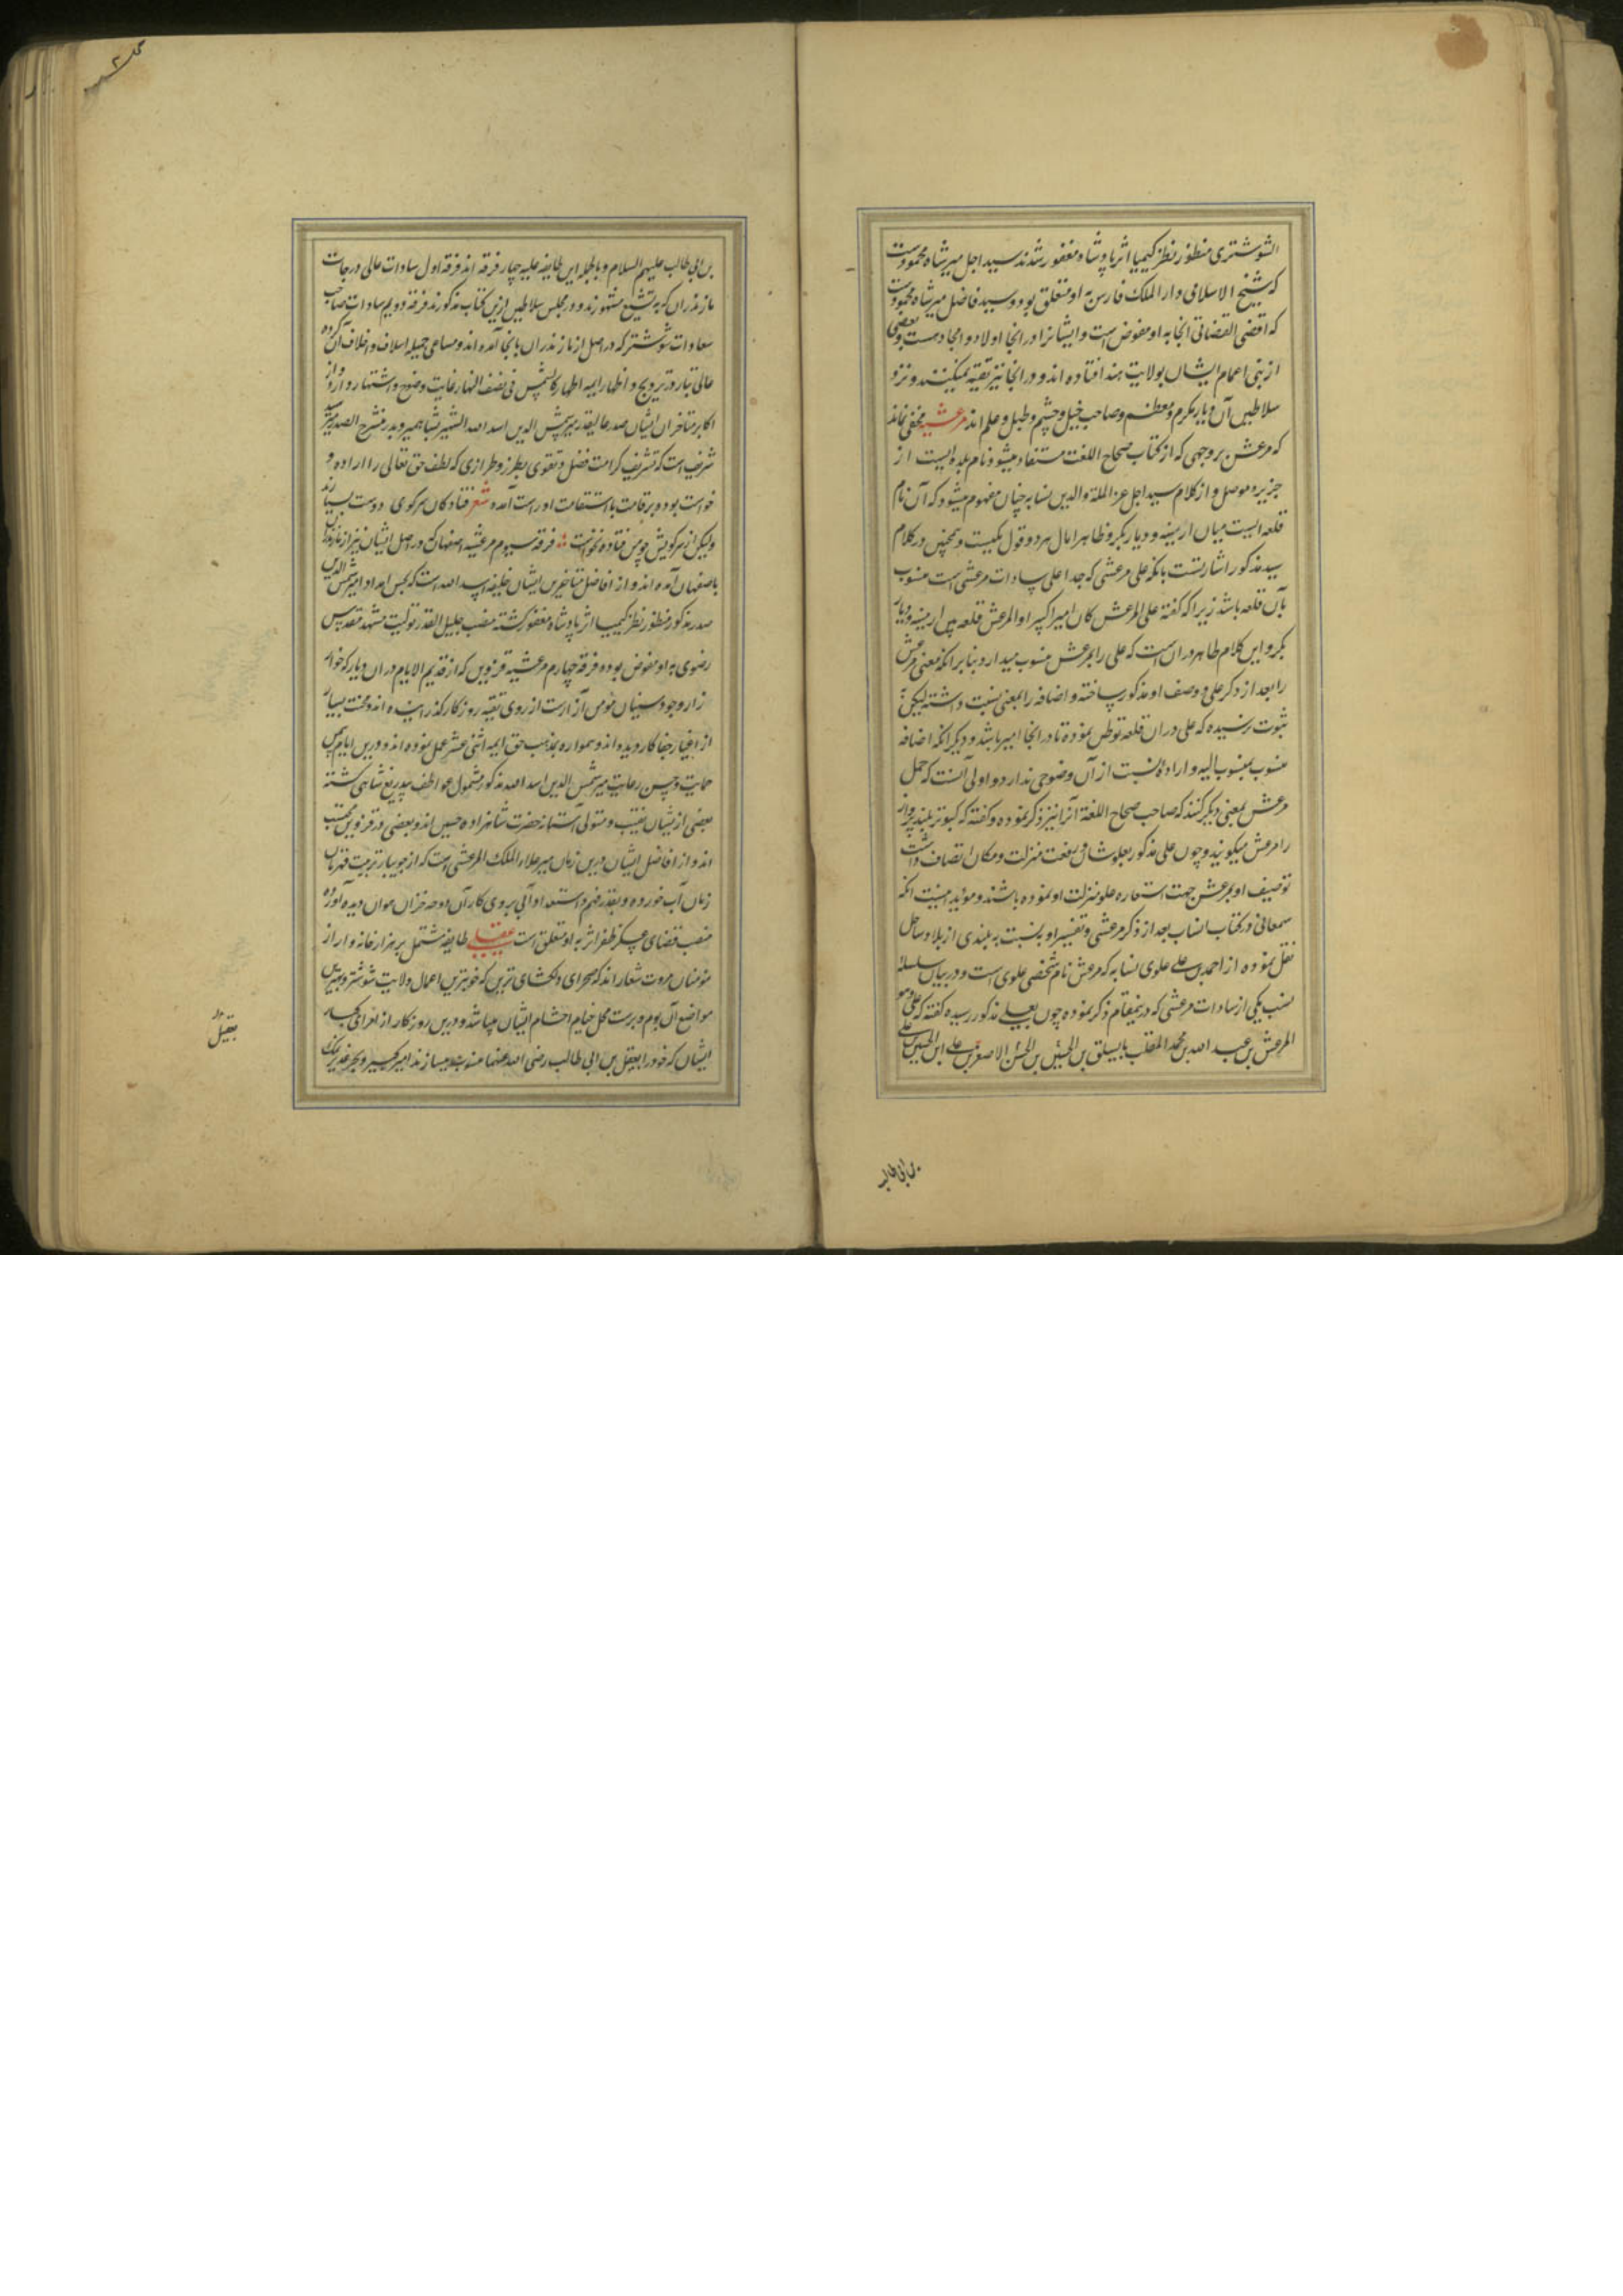 الشوشتری منظور نظر کیمیا اثر پادشاه مغفور شدند سید اجل میر شاه محمودست
که شیخ الاسلامی دار الملک فارس به او متعلق بود و سید فاضل میر شاه محمودست
که اقضی القضاتی انجا به او مفوض است و ایشانرا در انجا اولاد و امجاد هست و بعضی
از بنی اعمام ایشان بولایت هند افتاده اند و در انجا نیز تقیه نمیکنند و نزد
سلاطین آن دیار مکرم و معظم و صاحب خیل و حشم و طبل و علم اند مرعشیه مخفی نماند
که مرعش بر وجهی که از کتاب صحاح اللغت مستفاد میشود نام بلده ایست از
جزیره موصل و از کلام سید اجل عز الملة والدین نسابه چنان مفهوم میشود که آن نام
قلعه ایست میان ارمینه و دیار بکر و ظاهرا مال هر دو قول یکیست و همچنین در کلام
سید مذکور اشارتست بانکه علی مرعشی که جد اعلی سادات مرعشی است منسوب
بآن قلعه باشد زیرا که گفته علی المرعش کان امیرا کبیرا و المرعش قلعه بین ارمینه و دیار
بکر و این کلام ظاهر در آن است که علی را بمرعش منسوب میدارد بنابر انکه معنی مرعش
را بعد از ذکر علی و وصف او مذکور ساخته و اضافه را بمعنی نسبت داشته لیکن
ثبوت نرسیده که علی در ان قلعه توطن نموده تا در انجا امیر باشد و دیگر انکه اضافه
منسوب بمنسوب الیه و اراده نسبت از آن وضوحی ندارد و اولی آنست که حمل
مرعش بمعنی دیگر کنند که صاحب صحاح اللغة آنرا نیز ذکر نموده و گفته که کبوتر بلند پرواز
را مرعش میگویند و چون علی مذکور بعلو شان و رفعت منزلت و مکان اتصاف داشت
توصیف او بمرعش جهت استعاره علو منزلت او نموده باشند و مؤید اینست انکه
سمعانی در کتاب انساب بعد از ذکر مرعشی و تفسیر او بنسبت به بلندی از بلاد ساحل
نقل نموده از احمد بن علی علوی نسابه که مرعش نام شخصی علوی است و در بیان سلسله
نسب یکی از سادات مرعشی که در اینمقام ذکر نموده چون بعلی مذکور رسیده گفته که علی و هو
المرعش بن عبد الله بن محمد الملقب بالسیلق بن الحسن بن الحسین الاصغر بن علی ابن الحسین بن علی
بن ابی طالب
بن ابی طالب علیهم السلام و بالجمله این طایفه علیه چهار فرقه اند فرقه اول سادات عالی درجات
مازندران که به تشیع مشهورند و در مجلس سلاطین ازین کتاب مذکورند فرقه دویم سادات صاحب
سعادات شوشتر که در اصل از مازندران بانجا آمده اند و مساعی جمیله اسلاف و اخلاف آن گروه
عالی تبار در ترویج و اظهار ایمه اطهار کالشمس فی نصف النهار غایت وضوح و اشتهار دارد و از
اکابر متاخران ایشان صدر عالیقدر میر شمس الدین اسد الله الشهیر بشاه میر و پدر منشرح الصدر میر سید
شریف است که تشریف کرامت فضل و تقوی بطرز و طرازی که لطف حق تعالی را اراده و
خواست بود و بر قامت با استقامت او راست آمده شعر فتادکان سر کوی دوست بسیارند
ولیکن از سر کویش چو من فتاده نخواست فرقه سیوم مرعشیه اصفهان که در اصل ایشان نیز از مازندران
باصفهان آمده اند و از افاضل متاخرین ایشان خلیفه اسد الله است که بحسن امداد امیر شمس الدین
صدر مذکور منظور نظر کیمیا اثر پادشاه مغفور گشته منصب جلیل القدر تولیت مشهد مقدس
رضوی به او مفوض بوده فرقه چهارم مرعشیه قزوین که از قدیم الایام در ان دیار که خوار
زار وجود سنیان مؤمن آزارست از روی تقیه روزگار گذرانیده اند و محنت بسیار
از اغیار جفا کار دیده اند و همواره بمذهب حق ایمه اثنی عشر عمل نموده اند و درین ایام بیمن
حمایت و حسن رعایت میر شمس الدین اسد الله مذکور مشمول عواطف بیدریغ شاهی گشته
بعضی از یشان نقیب و متولی آستانه حضرت شاهزاده حسین اند و بعضی در قزوین محتسب
اند و از افاضل ایشان درین زمان میر علاء الملک المرعشی است که از جویبار تربیت قهرمان
زمان آب خورده و بقدر فهم و استعداد آبی بروی کار آن دوحه خزان موان دیده آورده
منصب قضای عسکر ظفر اثر به او متعلق است عقیلی طایفه مشتمل بر هزار خانه وار از
مؤمنان مروت شعار اند که صحرای دلکشای ترین که خوبترین اعمال ولایت شوشتر و بهترین
مواضع آن بوم و برست محل خیام احشام ایشان میباشد و درین روزگار از امرای کبار
ایشان که خود را بعقیل بن ابی طالب رضی الله عنهما منسوب میسازند امیر کبیر و بحر غدیر بیک
بعقیل